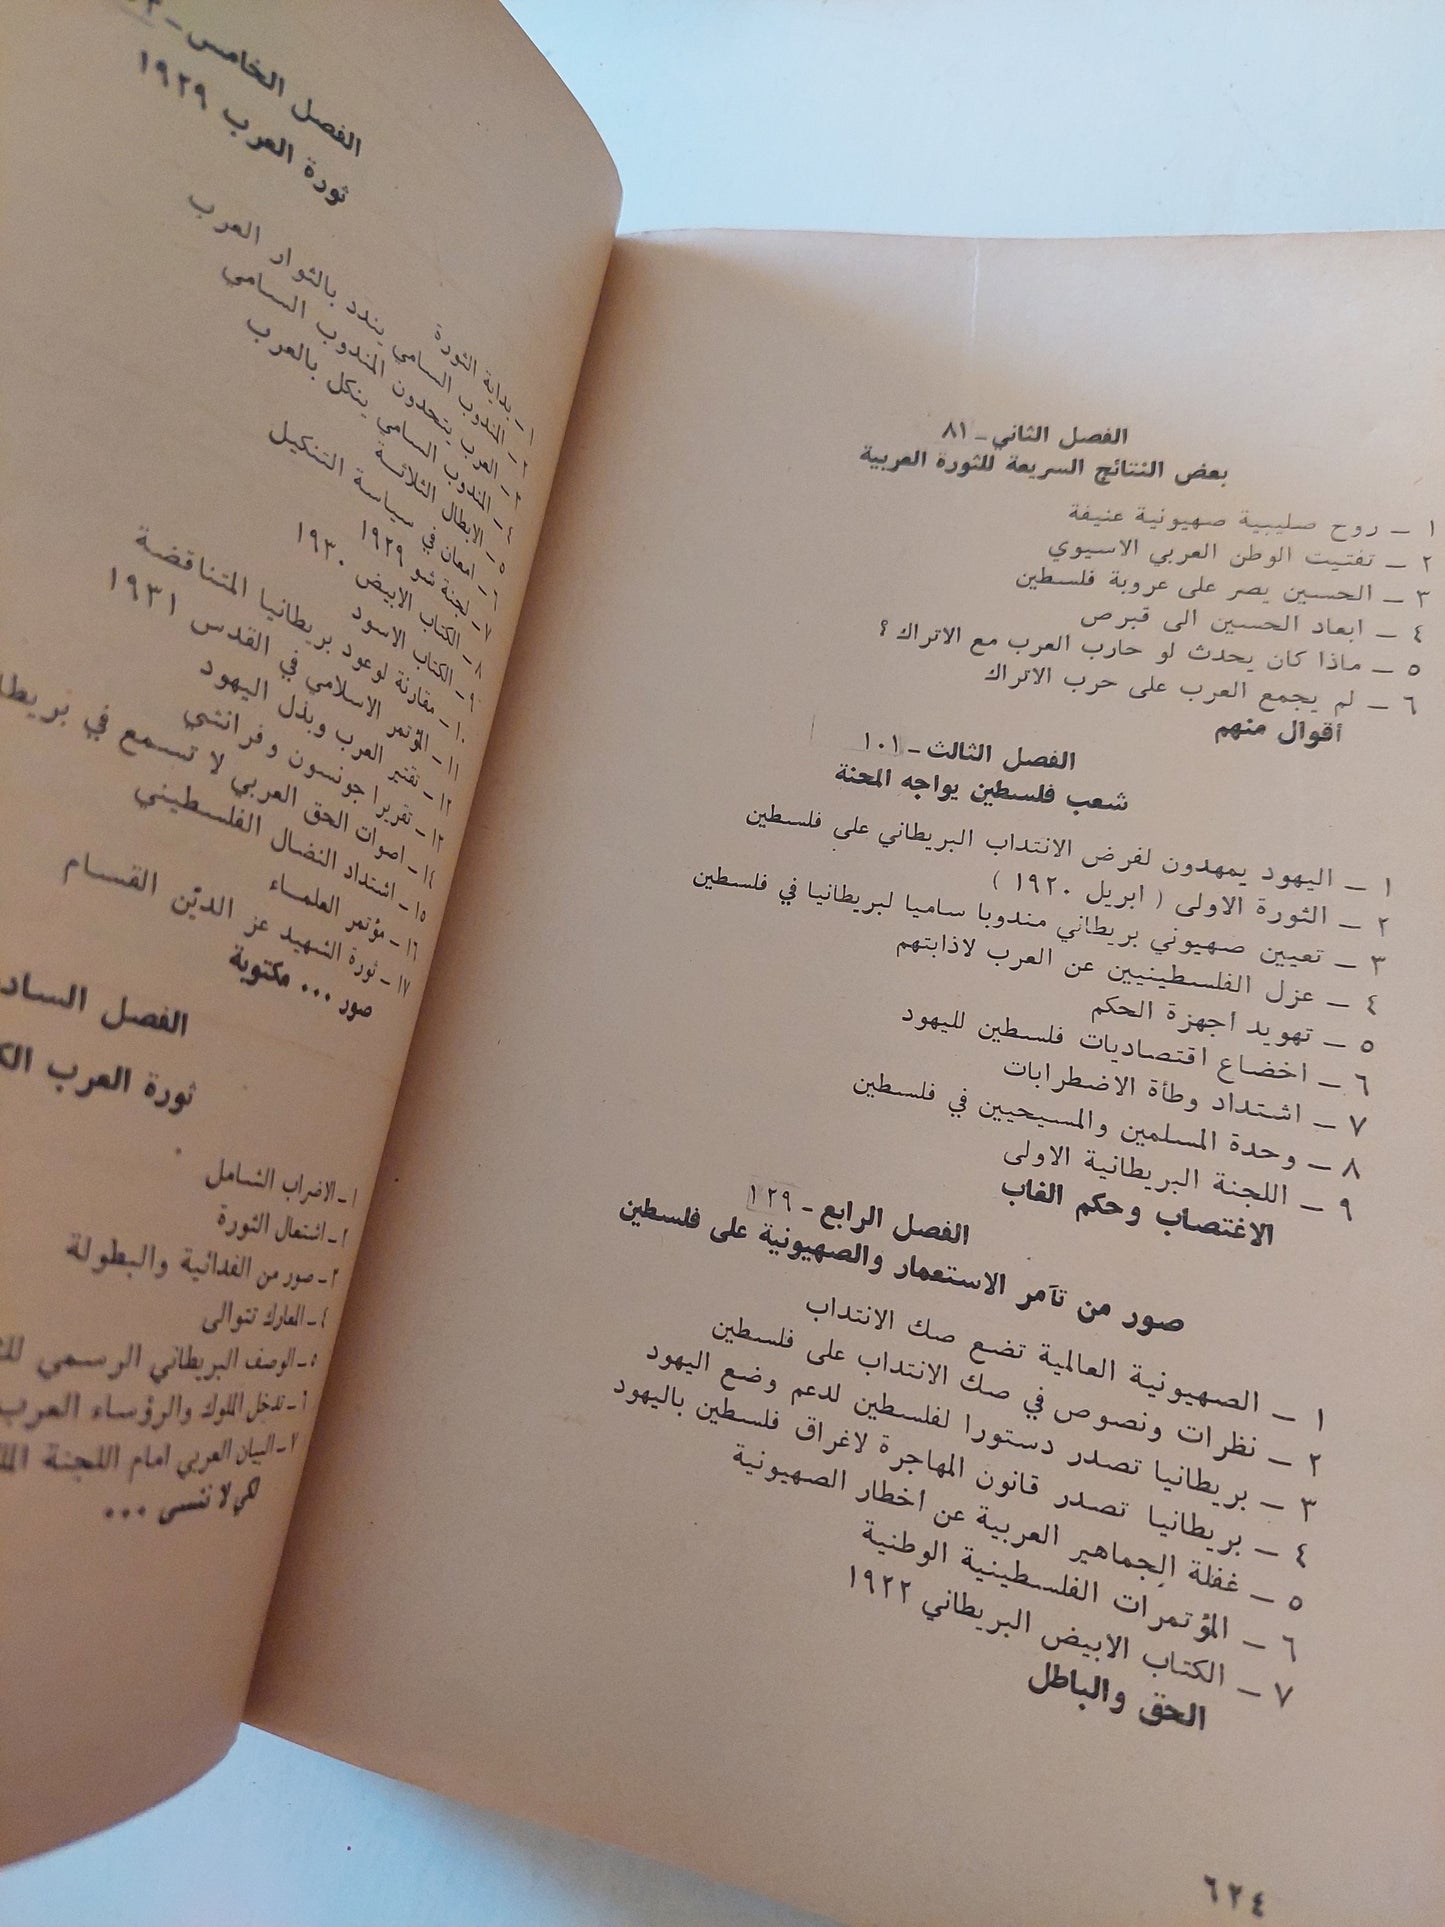 الفصل الثاني ـ ٨١
بعض النتائج السريعة للثورة العربية
١ ـ روح صليبية صهيونية عنيفة
٢ ـ تفتيت الوطن العربي الاسيوي
٣ ـ الحسين يصر على عروبة فلسطين
٤ ـ ابعاد الحسين الى قبرص
٥ ـ ماذا كان يحدث لو حارب العرب مع الاتراك ؟
٦ ـ لم يجمع العرب على حرب الاتراك
أقوال منهم
الفصل الثالث ـ ١٠١
شعب فلسطين يواجه المحنة
١ ـ اليهود يمهدون لفرض الانتداب البريطاني على فلسطين
٢ ـ الثورة الاولى ( ابريل ١٩٢٠ )
٣ ـ تعيين صهيوني بريطاني مندوبا ساميا لبريطانيا في فلسطين
٤ ـ عزل الفلسطينيين عن العرب لاذابتهم
٥ ـ تهويد أجهزة الحكم
٦ ـ اخضاع اقتصاديات فلسطين لليهود
٧ ـ اشتداد وطأة الاضطرابات
٨ ـ وحدة المسلمين والمسيحيين في فلسطين
٩ ـ اللجنة البريطانية الاولى
الاغتصاب وحكم الغاب
الفصل الرابع ـ ١٢٩
صور من تآمر الاستعمار والصهيونية على فلسطين
١ ـ الصهيونية العالمية تضع صك الانتداب
٢ ـ نظرات ونصوص في صك الانتداب على فلسطين
٣ ـ بريطانيا تصدر دستورا لفلسطين لدعم وضع اليهود
٤ ـ بريطانيا تصدر قانون المهاجرة لاغراق فلسطين باليهود
٥ ـ غفلة الجماهير العربية عن اخطار الصهيونية
٦ ـ المؤتمرات الفلسطينية الوطنية
٧ ـ الكتاب الابيض البريطاني ١٩٢٢
الحق والباطل
٦٢٤
الفصل الخامس ـ
ثورة العرب ١٩٢٩
١ ـ بداية الثورة
٢ ـ المندوب السامي يندد بالثوار العرب
٣ ـ العرب يتحدون المندوب السامي
٤ ـ المندوب السامي ينكل بالعرب
٥ ـ الابطال الثلاثة
٦ ـ امعان في سياسة التنكيل
٧ ـ لجنة شو ١٩٢٩
٨ ـ الكتاب الابيض ١٩٣٠
٩ ـ الكتاب الاسود
١٠ ـ مقارنة لوعود بريطانيا المتناقضة
١١ ـ المؤتمر الاسلامي في القدس ١٩٣١
١٢ ـ تقتير العرب وبذل اليهود
١٣ ـ تقريرا جونسون وفرانشي
١٤ ـ اصوات الحق العربي لا تسمع في
١٥ ـ اشتداد النضال الفلسطيني
١٦ ـ مؤتمر العلماء
١٧ ـ ثورة الشهيد عز الدين القسام
صور ... مكتوبة
الفصل
ثورة العرب
١ ـ الاضراب الشامل
٢ ـ اشتعال الثورة
٣ ـ صور من الفدائية والبطولة
٤ ـ المعارك تتوالى
٥ ـ الوصف البريطاني الرسمي
٦ ـ تدخل الملوك والرؤساء العرب
٧ ـ البيان العربي امام اللجنة
لكي لا ننسى ...